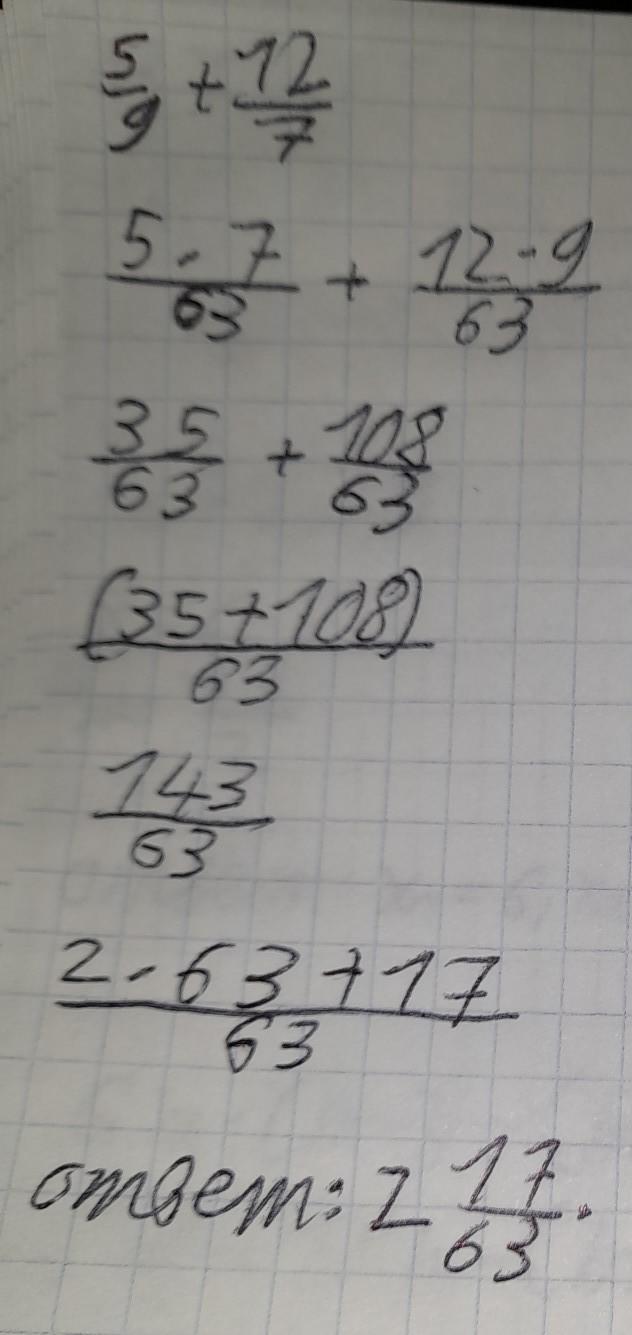 5/9 + 12/7
5 · 7/63 + 12 · 9/63
35/63 + 108/63
(35+108)/63
143/63
2 · 63 + 17/63
ответ: 2 17/63.